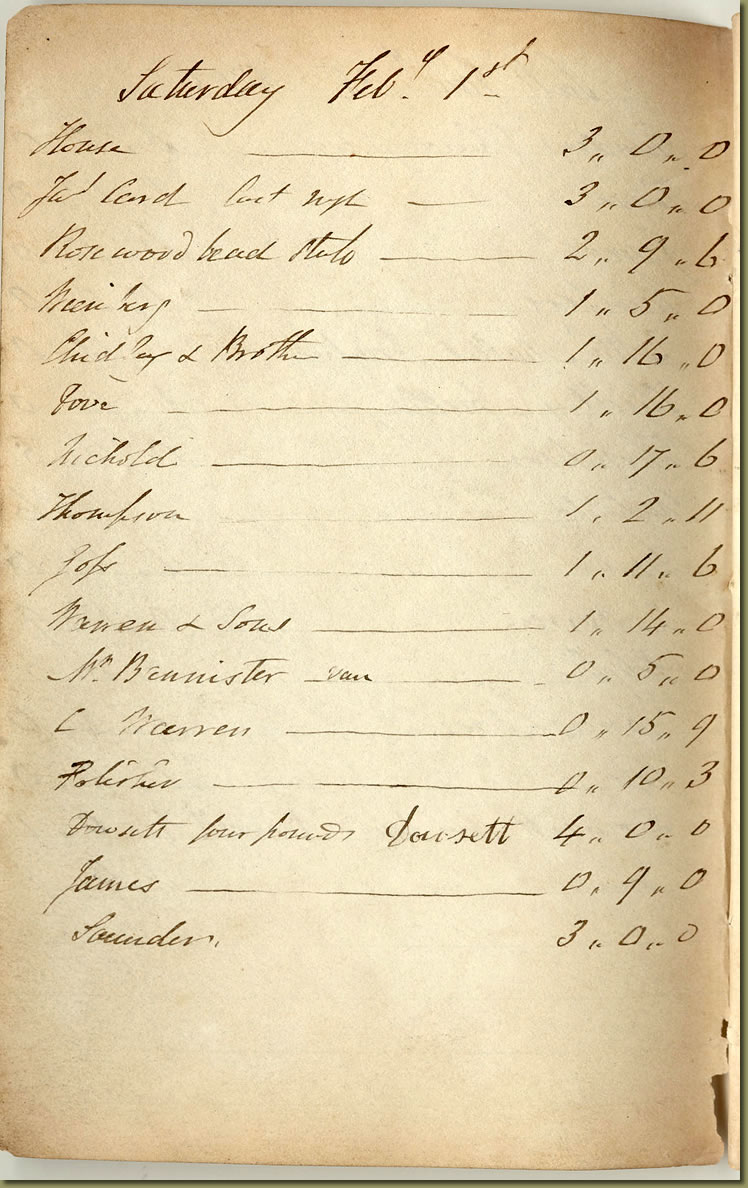 Saturday Feby 1st
House 3 " 0 " 0
Jas Card last night 3 " 0 " 0
Rosewood bead 2 " 9 " 6
1 " 5 " 0
Chidley & Brother 1 " 16 " 0
1 " 16 " 0
Nichold 0 " 17 " 6
Thompson 1 " 2 " 11
1 " 11 " 6
Warren & Sons 1 " 14 " 0
Mr. Bannister van 0 " 5 " 0
C Warren 0 " 15 " 9
Polisher 0 " 10 " 3
Dowsett four pounds Dowsett 4 " 0 " 0
James 0 " 9 " 0
Saunders. 3 " 0 " 0